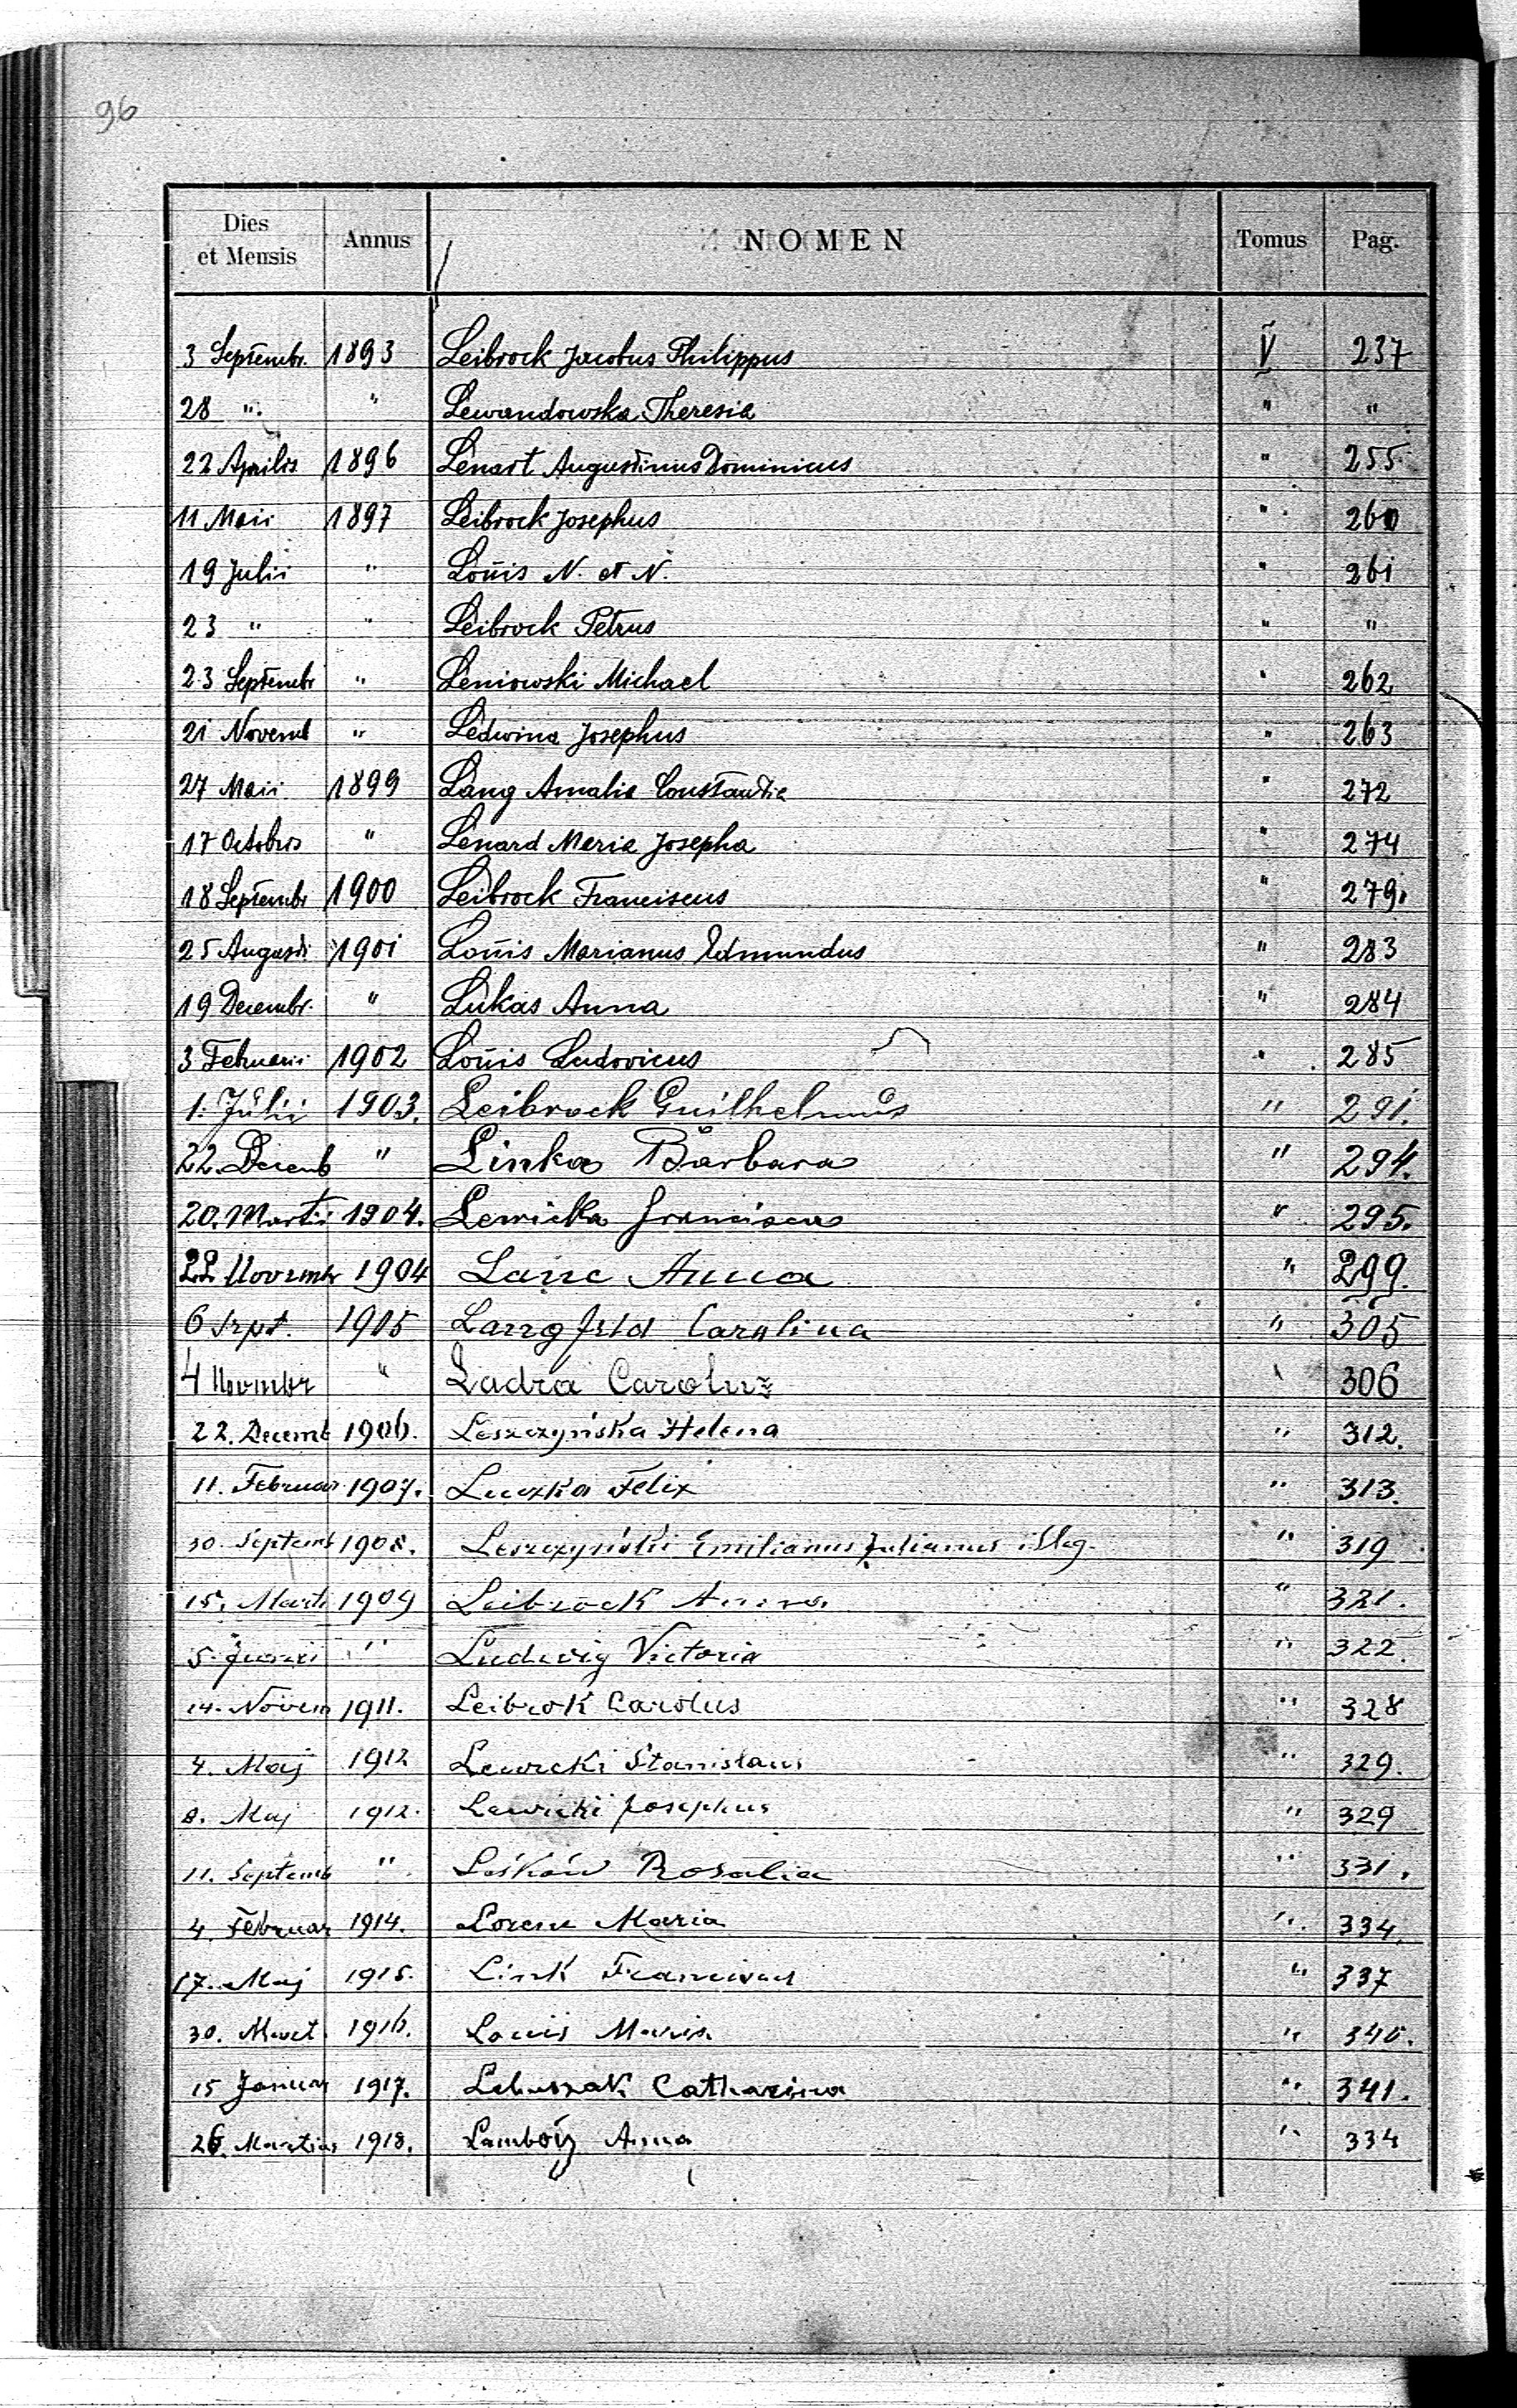 96
Dies et Mensis Annus NOMEN Tomus Pag.
3 Septembr. 1893 Leibrock Jacobus Philippus V 237
28 " " Lewandowska Theresia " "
22 Aprilis 1896 Lenart Augustinus Dominicus " 255
11 Maii 1897 Leibrock Josephus " 260
19 Julii " Loŭis N. et N. " 261
23 " " Leibrock Petrus " "
23 Septembr " Leniowski Michael " 262
21 Novemb " Ledwina Josephus " 263
27 Maii 1899 Lang Amalia Constantia " 272
17 Octobris " Lenard Maria Josepha " 274
18 Septembr 1900 Leibrock Franciscus " 279.
25 Augusti 1901 Loŭis Marianus Edmundus " 283
19 Decembr. " Lukas Anna " 284
3 Februarii 1902 Loŭis Ludovicus " 285
1. Jŭlii 1903. Leibrock Guilhelmŭs " 291.
22. Decemb " Linka Barbara " 294.
20. Martii 1904. Lewicka Francisca " 295.
22 Novembr 1904 Anna " 299.
6 Sept. 1905 Langfeld Carolina " 305
4 Novembr " Ladra Carolus " 306
22. Decemb 1906. Leszczyńska Helena " 312.
11. Februar 1907. Luczka Felix " 313.
30. Septemb 1908. Leszczyński Emilianus Julianus illeg. " 319
15. Marti 1909 Leibrock Anna " 321.
5. Junii " Ludwig Victoria " 322.
14. Novem 1911. Leibrok Carolus " 328
4. Maj 1912 Lewicki Stanislaus " 329.
8. Maj 1912. Lewicki Josephus " 329
11. Septemb " Leśków Rosalia " 331.
4. Februar 1914. Lorenz Maria " 334.
17. Maj 1915. Link Franciscus " 337
30. Mart. 1916. Louis Maria " 340.
15 Januar 1917. Catharina " 341.
26. Martius 1918. Lambóy Anna " 334